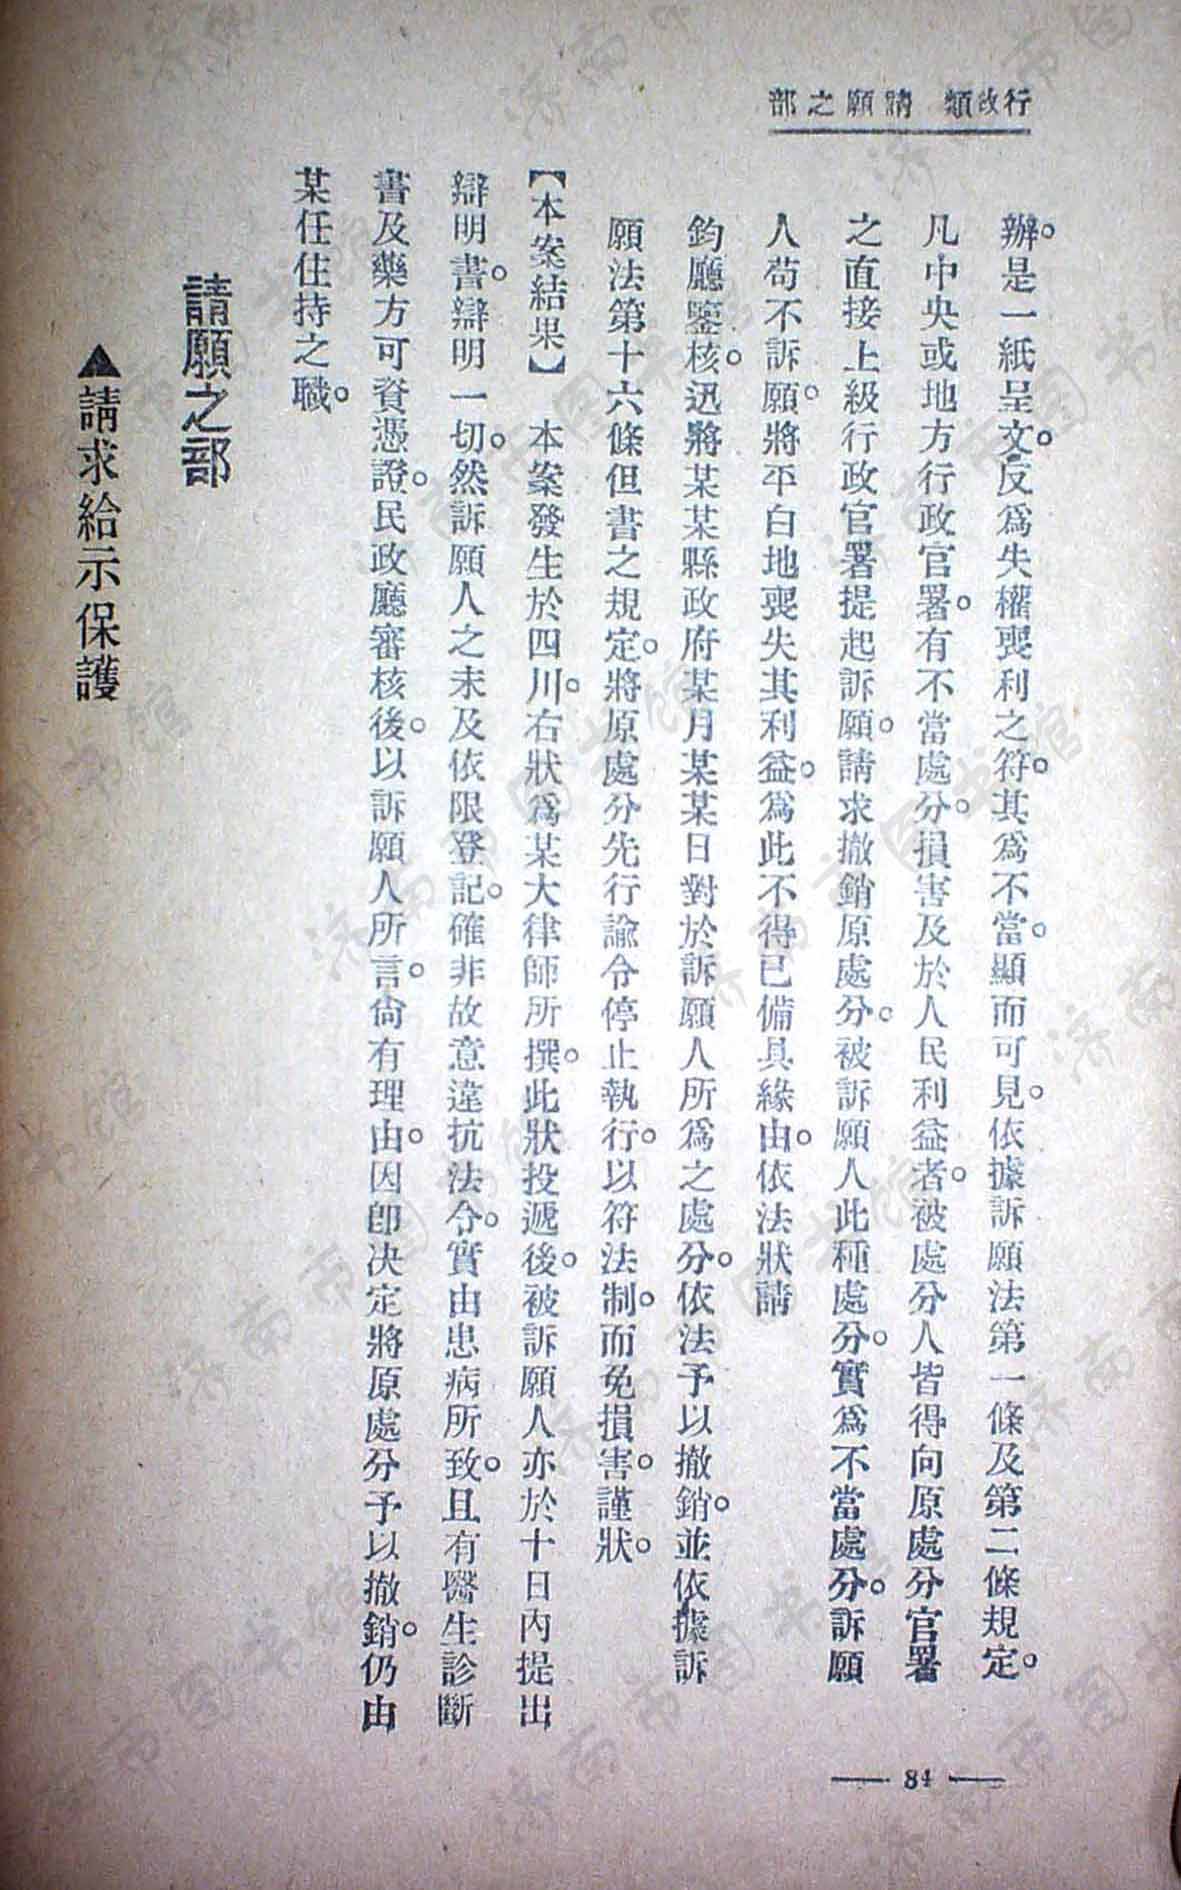 行政類　請願之部
辦。是一紙呈文。反爲失權喪利之符。其爲不當。顯而可見。依據訴願法第一條及第二條規定。
凡中央或地方行政官署。有不當處分。損害及於人民利益者。被處分人皆得向原處分官署
之直接上級行政官署提起訴願。請求撤銷原處分。被訴願人此種處分。實爲不當處分。訴願
人苟不訴願。將平白地喪失其利益。爲此不得已備具緣由。依法狀請
鈞廳鑒核。迅將某某縣政府某月某某日對於訴願人所爲之處分。依法予以撤銷。並依據訴
願法第十六條但書之規定。將原處分先行諭令停止執行。以符法制。而免損害。謹狀。
【本案結果】　本案發生於四川。右狀爲某大律師所撰。此狀投遞後。被訴願人亦於十日內提出
辯明書。辯明一切。然訴願人之未及依限登記。確非故意違抗法令。實由患病所致。且有醫生診斷
書及藥方可資憑證。民政廳審核後。以訴願人所言。尙有理由。因卽決定將原處分予以撤銷。仍由
某任住持之職。
請願之部
▲請求給示保護
— 84 —
济南市图书馆